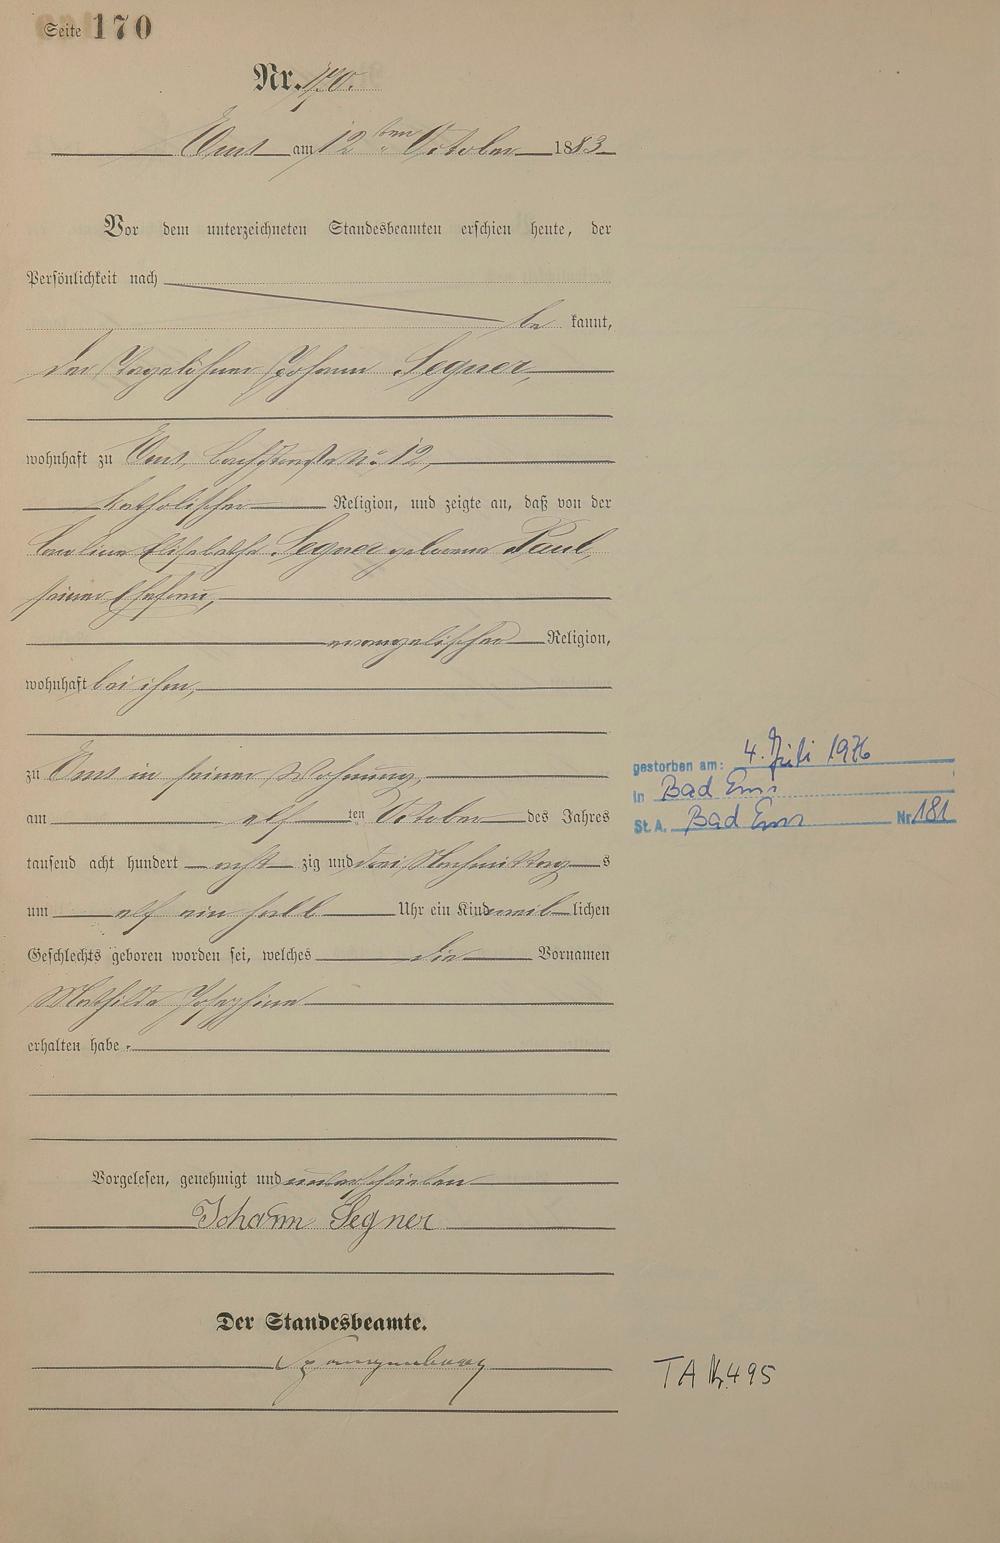 Seite 170
Nr. 170.
Ems am 12ten October 1883
Vor dem unterzeichneten Standesbeamten erschien heute, der
Persönlichkeit nach
be kannt,
der Tagelöhner Johann Segner,
wohnhaft zu Ems, No 12,
katholischer Religion, und zeigte an, daß von der
Caroline Elisabethe Segner geborene Paul,
seiner Ehefrau,
evangelischer Religion,
wohnhaft bei ihm,
zu Ems in seiner Wohnung,
am elf ten October des Jahres
tausend acht hundert acht zig und drei Nachmittag s
um elf ein halb Uhr ein Kind weib lichen
Geschlechts geboren worden sei, welches die Vornamen
Mathilde Josephine
erhalten habe.
Vorgelesen, genehmigt und unterschrieben
Johann Segner
Der Standesbeamte.
Spangenberg
gestorben am: 4. Juli 1976
in Bad Ems
St. A. Bad Ems Nr 181
TA 495